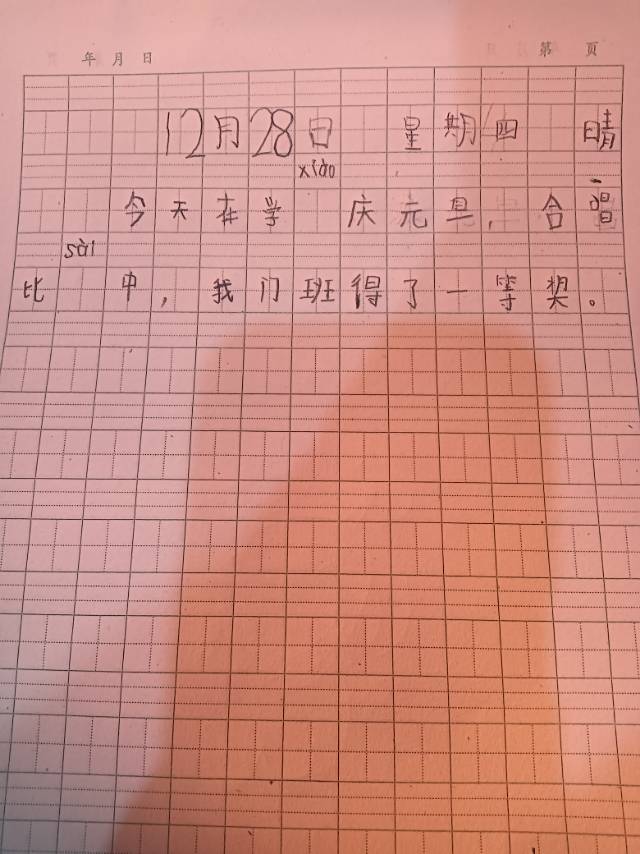 年 月 日 第 页
12月28日 星期四 晴
xiào
今天在学 庆元旦,合唱
sài
比 中,我门班得了一等奖。